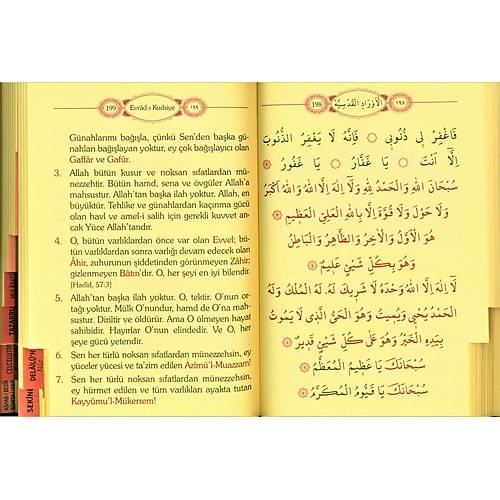 199 Evrâd-ı Kudsiye ١٩٩
Günahlarımı bağışla, çünkü Sen'den başka gü-
nahları bağışlayan yoktur, ey çok bağışlayıcı olan
Gaffâr ve Gafûr.
3. Allah bütün kusur ve noksan sıfatlardan mü-
nezzehtir. Bütün hamd, sena ve övgüler Allah'a
mahsustur. Allah'tan başka ilah yoktur. Allah, en
büyüktür. Tehlike ve günahlardan kaçınma gücü
olan havl ve amel-i salih için gerekli kuvvet an-
cak Yüce Allah'tandır.
4. O, bütün varlıklardan önce var olan Evvel; bü-
tün varlıklardan sonra varlığı devam edecek olan
Âhir, zuhurunun şiddetinden görünmeyen Zâhir;
gizlenmeyen Bâtın'dır. O, her şeyi en iyi bilendir.
[Hadîd, 57:3]
5. Allah'tan başka ilah yoktur. O, tektir. O'nun or-
tağı yoktur. Mülk O'nundur, hamd de O'na mah-
sustur. Diriltir ve öldürür. Ama O ölmeyen hayat
sahibidir. Hayırlar O'nun elindedir. Ve O, her
şeye gücü yetendir.
6. Sen her türlü noksan sıfatlardan münezzehsin, ey
yüceler yücesi ve ta'zim edilen Azîmü'l-Muazzam!
7. Sen her türlü noksan sıfatlardan münezzehsin,
ey hürmet edilen ve tüm varlıkları ayakta tutan
Kayyûmu'l-Mükerrem!
CELCELUTİYE
TAZARRU
DELÂİLÜ'N
NÛR
SEKİNE
198 اَلْاَوْرَادُ الْقُدْسِيَّةُ ١٩٨
فَاغْفِرْ لِى ذُنُوبِى فَاِنَّهُ لَا يَغْفِرُ الذُّنُوبَ
اِلَّا اَنْتَ يَا غَفَّارُ يَا غَفُورُ
سُبْحَانَ اللهِ وَالْحَمْدُ لِلهِ وَلَا اِلٰهَ اِلَّا اللهُ وَاللهُ اَكْبَرُ
وَلَا حَوْلَ وَلَا قُوَّةَ اِلَّا بِاللهِ الْعَلِىِّ الْعَظِيمِ
هُوَ الْاَوَّلُ وَالْاٰخِرُ وَالظَّاهِرُ وَالْبَاطِنُ
وَهُوَ بِكُلِّ شَيْئٍ عَلِيمٌ
لَا اِلٰهَ اِلَّا اللهُ وَحْدَهُ لَا شَرِيكَ لَهُ، لَهُ الْمُلْكُ وَلَهُ
الْحَمْدُ يُحْيِى وَيُمِيتُ وَهُوَ الْحَىُّ الَّذِى لَا يَمُوتُ
بِيَدِهِ الْخَيْرُ وَهُوَ عَلٰى كُلِّ شَيْئٍ قَدِيرٌ
سُبْحَانَكَ يَا عَظِيمُ الْمُعَظَّمُ
سُبْحَانَكَ يَا قَيُّومُ الْمُكَرَّمُ